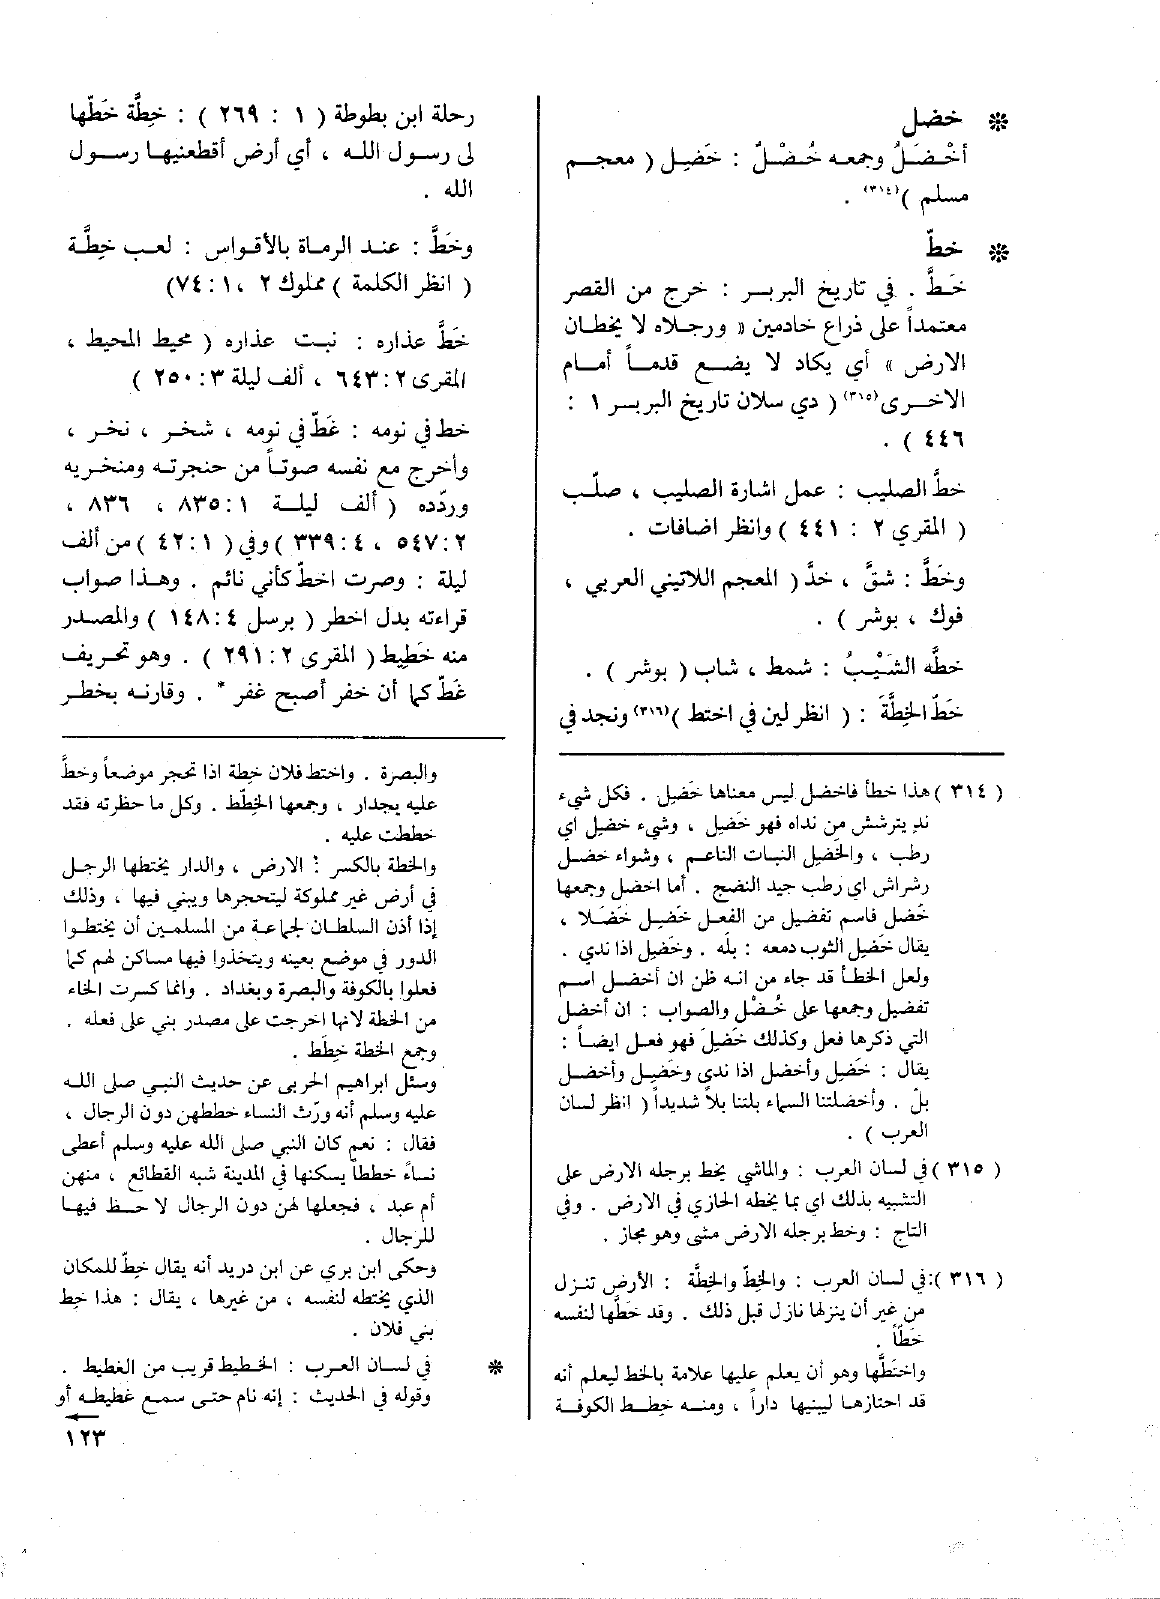 * خضل
أخْضَلُ وجمعه خُضْلٌ : خَضِيل ( معجم
مسلم )(٣١٤) .
* خطّ
خَطَّ . في تاريخ البربر : خرج من القصر
معتمداً على ذراع خادمين « ورجلاه لا يخطان
الارض » أي يكاد لا يضع قدماً أمام
الاخرى(٣١٥) ( دي سلان تاريخ البربر ١ :
٤٤٦ ) .
خطَّ الصليب : عمل اشارة الصليب ، صلّب
( المقري ٢ : ٤٤١ ) وانظر اضافات .
وخَطَّ : شقَّ ، خدَّ ( المعجم اللاتيني العربي ،
فوك ، بوشر ) .
خطَّه الشَيْبُ : شمط ، شاب ( بوشر ) .
خَطّ الخِطَّةَ : ( انظر لين في اختط )(٣١٦) ونجد في
رحلة ابن بطوطة ( ١ : ٢٦٩ ) : خِطَّة خَطّها
لى رسول الله ، أي أرض أقطعنيها رسول
الله .
وخَطَّ : عند الرماة بالأقواس : لعب خِطَّة
( انظر الكلمة ) مملوك ٢ ، ١ : ٧٤)
خَطَّ عذاره : نبت عذاره ( محيط المحيط ،
المقرى ٢ : ٦٤٣ ، ألف ليلة ٣ : ٢٥٠ )
خط في نومه : غَطّ في نومه ، شخر ، نخر ،
وأخرج مع نفسه صوتاً من حنجرته ومنخريه
وردّده ( ألف ليلة ١ : ٨٣٥ ، ٨٣٦ ،
٢ : ٥٤٧ ، ٤ : ٣٣٩ ) وفي ( ١ : ٤٢ ) من ألف
ليلة : وصرت اخطّ كأني نائم . وهذا صواب
قراءته بدل اخطر ( برسل ٤ : ١٤٨ ) والمصدر
منه خَطِيط ( المقرى ٢ : ٢٩١ ) . وهو تحريف
غَطّ كما أن خفر أصبح غفر * . وقارنه بخطر
( ٣١٤ ) هذا خطأ فاخضل ليس معناها خَضِيل . فكل شيء
ندٍ يترشش من نداه فهو خَضِيل ، وشيء خضيل اي
رطب ، والخَضِيل النبات الناعم ، وشواء خضل
رشراش اي رطب جيد النضج . أما اخضل وجمعها
خُضل فاسم تفضيل من الفعل خَضِيل خَضَلا ،
يقال خَضِيل الثوب دمعه : بلَّه . وخَضِيل اذا ندي .
ولعل الخطأ قد جاء من انه ظن ان أخضل اسم
تفضيل وجمعها على خُضْل والصواب : ان أخضل
التي ذكرها فعل وكذلك خَضِيلَ فهو فعل ايضاً :
يقال : خَضِيل وأخضل اذا ندى وخَضِيل وأخضل
بلّ . وأخضلتنا السماء بلتنا بلاً شديداً ( انظر لسان
العرب ) .
( ٣١٥ ) في لسان العرب : والماشي يخط برجله الارض على
التشبيه بذلك اي بما يخطه الحازي في الارض . وفي
التاج : وخط برجله الارض مشى وهو مجاز .
( ٣١٦ ): في لسان العرب : والخِطّ والخِطَّة : الأرض تنزل
من غير أن ينزلها نازل قبل ذلك . وقد خَطَّها لنفسه
خَطّاً .
واختَطَّها وهو أن يعلم عليها علامة بالخط ليعلم أنه
قد احتازها ليبنيها داراً ، ومنه خِطط الكوفة
والبصرة . واختط فلان خِطة اذا تحجر موضعاً وخطَّ
عليه بجدار ، وجمعها الخِطَط . وكل ما حظرته فقد
خططت عليه .
والخطة بالكسر : الارض ، والدار يختطها الرجل
في أرض غير مملوكة ليتحجرها ويبني فيها ، وذلك
إذا أذن السلطان لجماعة من المسلمين أن يختطوا
الدور في موضع بعينه ويتخذوا فيها مساكن لهم كما
فعلوا بالكوفة والبصرة وبغداد . وانما كسرت الخاء
من الخطة لانها اخرجت على مصدر بني على فعله .
وجمع الخطة خِطَط .
وسئل ابراهيم الحربى عن حديث النبي صلى الله
عليه وسلم أنه ورّث النساء خططهن دون الرجال ،
فقال : نعم كان النبي صلى الله عليه وسلم أعطى
نساءً خططاً يسكنها في المدينة شبه القطائع ، منهن
أم عبد ، فجعلها لهن دون الرجال لا حظ فيها
للرجال .
وحكى ابن بري عن ابن دريد أنه يقال خِطّ للمكان
الذي يختطه لنفسه ، من غيرها ، يقال : هذا خِط
بني فلان .
* في لسان العرب : الخطيط قريب من الغطيط .
وقوله في الحديث : إنه نام حتى سمع غطيطه أو
١٢٣